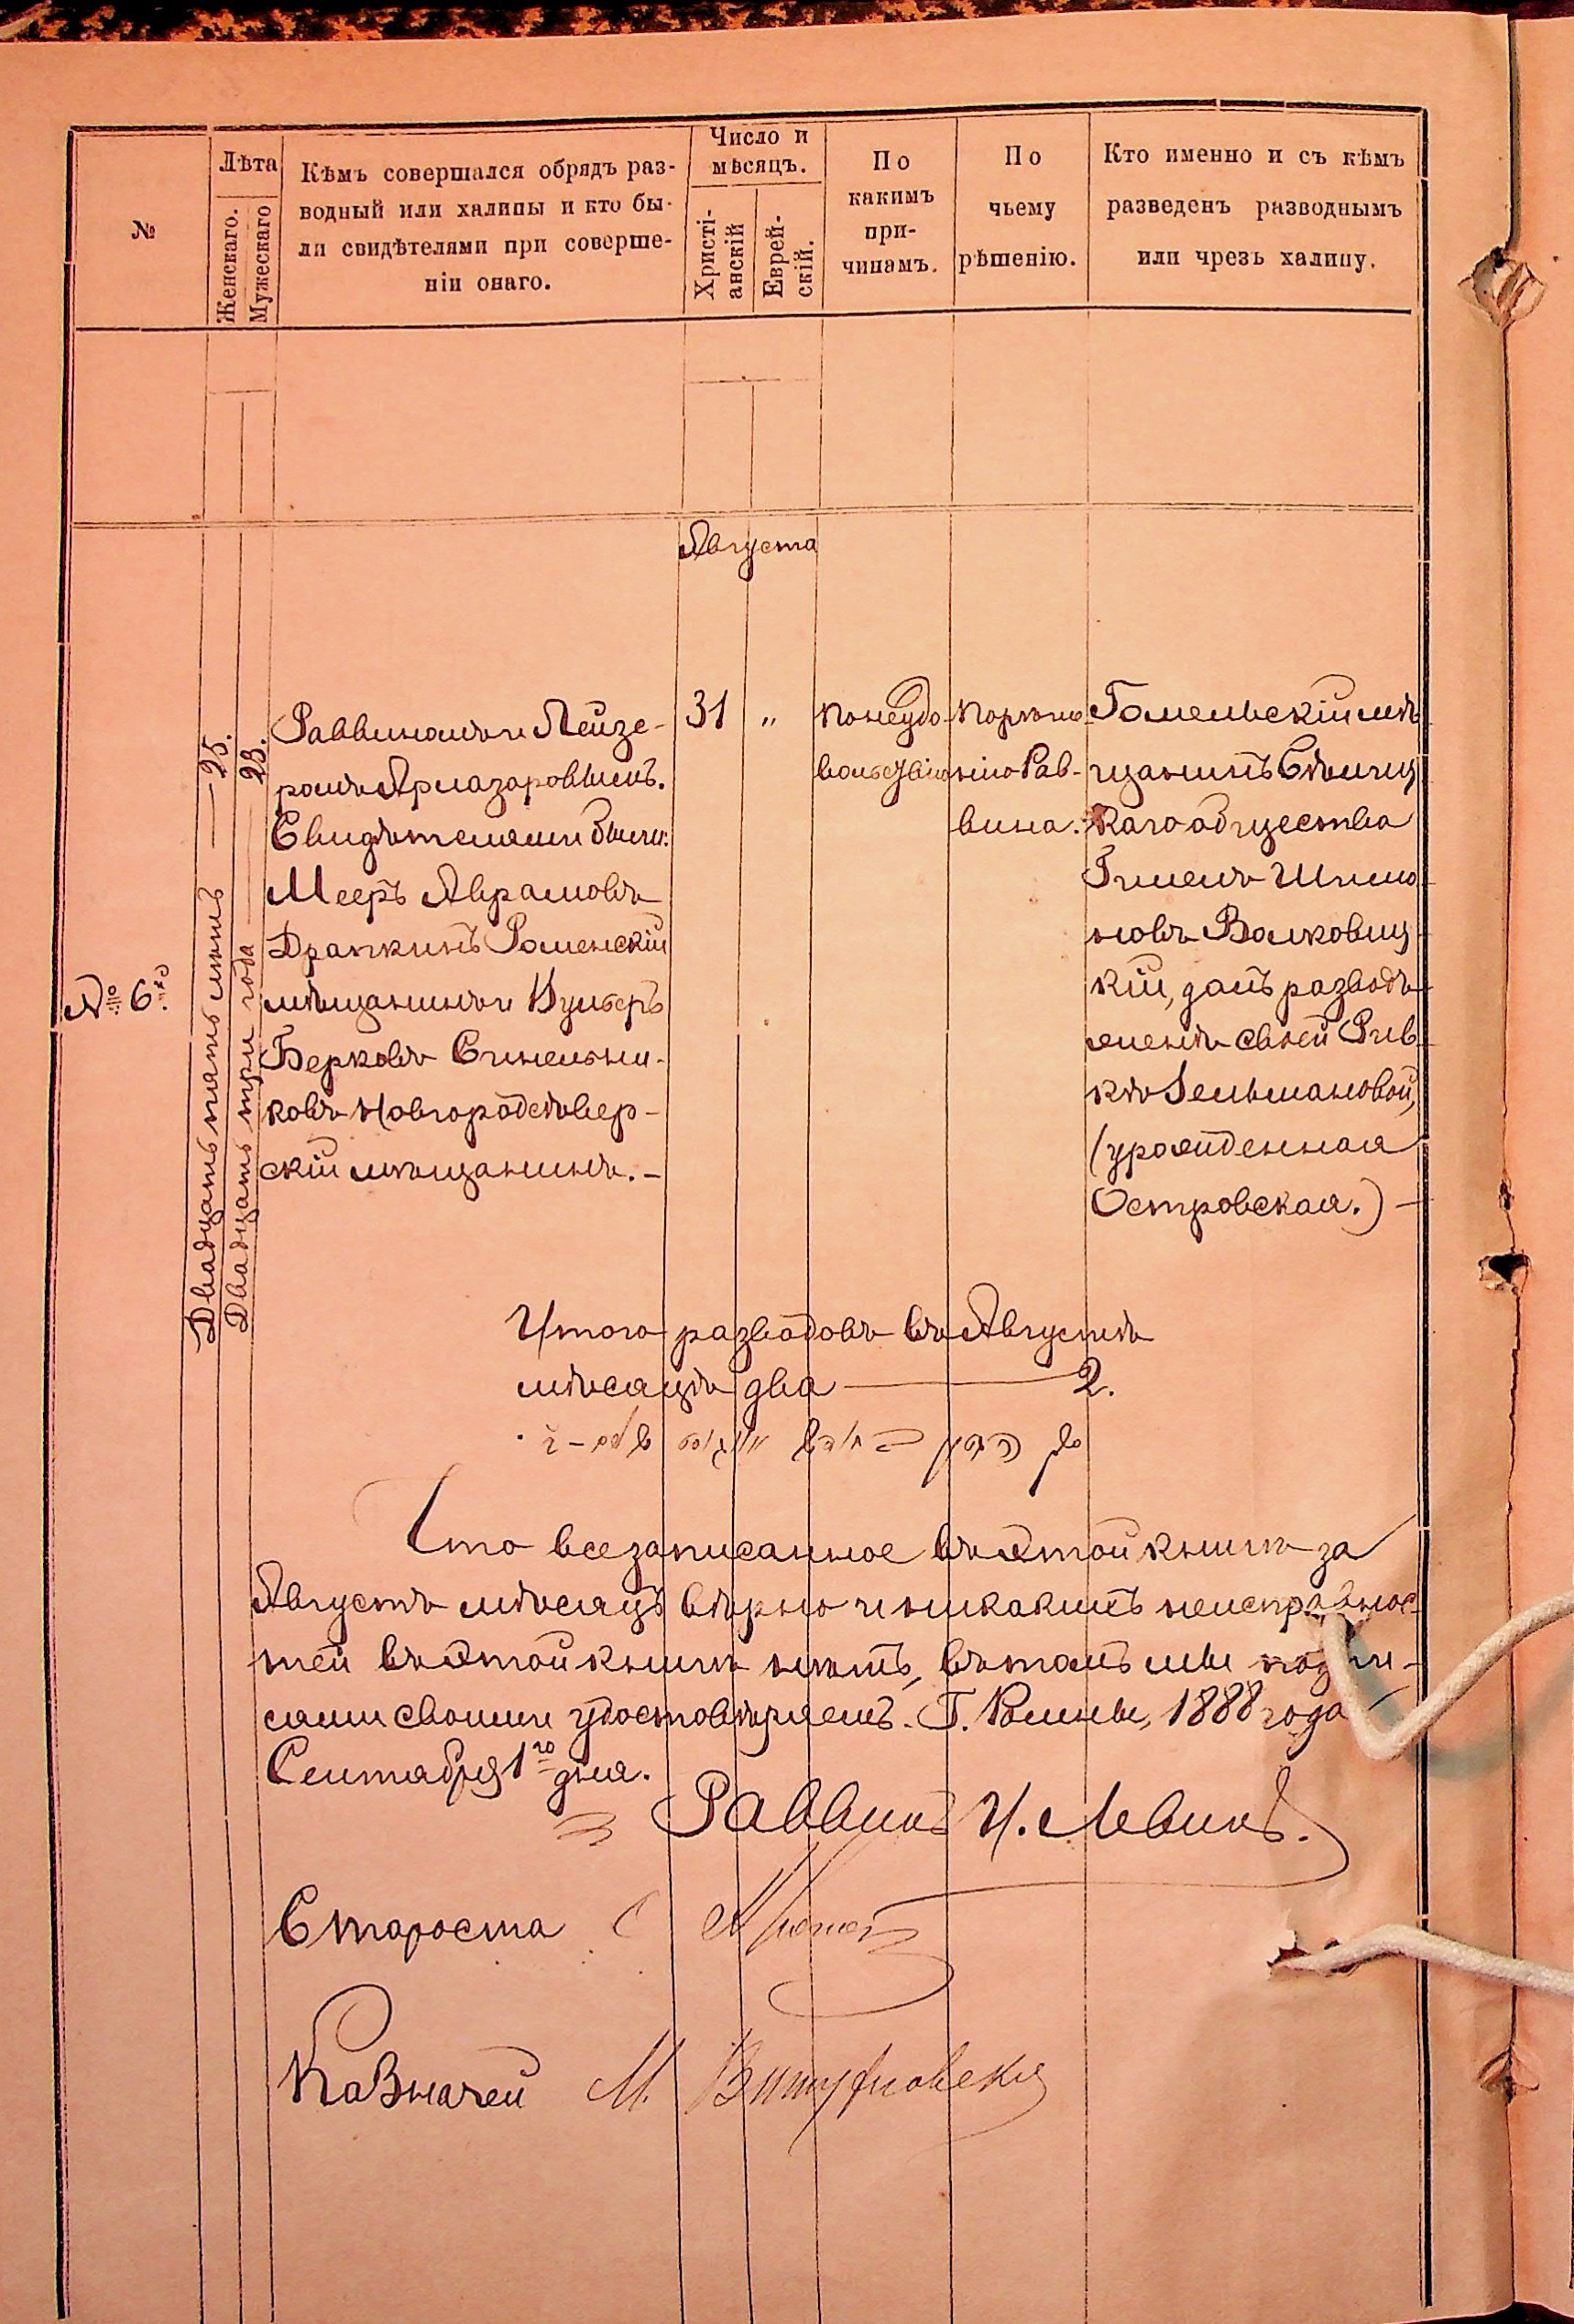 №
Лѣта
Женскаго.
Мужескаго
Кѣмъ совершался обрядъ раз-
водный или халицы и кто бы-
ли свидѣтелями при соверше-
ніи онаго.
Число и
мѣсяцъ.
Христі-
анскій
Еврей-
скій.
По
какимъ
при-
чинамъ.
По
чьему
рѣшенію.
Кто именно и съ кѣмъ
разведенъ разводнымъ
или чрезъ халицу.
Августа
№ 6й
Двадцать пять лѣтъ — 25.
Двадцать три года — 23.
Раввиномъ и Лейзе-
ромъ
Свидѣтелями были:
Мееръ Аврамовъ
Драпкинъ Роменскій
мѣщанинъ и
Берковъ Синельни-
ковъ Новгородсѣвер-
скій мѣщанинъ.-
31
"
по неудо-
вольствію
по рѣше-
нію Рав-
вина.
Гомельскій мѣ-
щанинъ
каго общества
Гилель Шлио-
мовъ Волковиц
кій, далъ разводъ
женѣ своей Рив
кѣ Гельмановой,
(урожденная
Островская.) —
Итого разводовъ въ Августѣ
мѣсяцѣ два — 2.
Что все записанное въ этой книгѣ за
Августъ мѣсяцъ вѣрно и никакихъ неисправнос-
тей въ этой книгѣ нѣтъ, въ томъ мы подпи-
сями своими удостовѣряемъ. Г. Ромны, 1888 года
Сентября 1го дня.
Раввинъ И. Левинъ.
Староста
Казначей М.